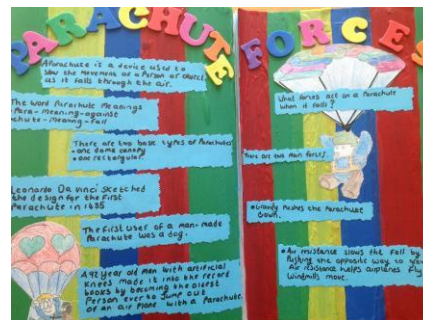 PARACHUTE
A Parachute is a device used to
slow the movement of a Person or
as it falls through the air.
The word Parachute Meanings
Para - meaning - against
chute - meaning - fall
There are two base types of Parachutes
• one dome canopy
• one rectangular.
Leonardo Da vinci sketched
the design for the first
Parachute in
The first user of a man-made
Parachute was a dog.
A 92 year old man with artificial
Knees made it into the record
books by becoming the oldest
Person ever to Jump out
of an air Plane with a Parachute.
FORCES
What forces act on a Parachute
when it falls?
There are two main forces.
• Gravity Pushes the Parachute
down.
• Air resistance slows the fall by
Pushing the opposite way to
Air resistance helps airplanes fly
Windmills move.